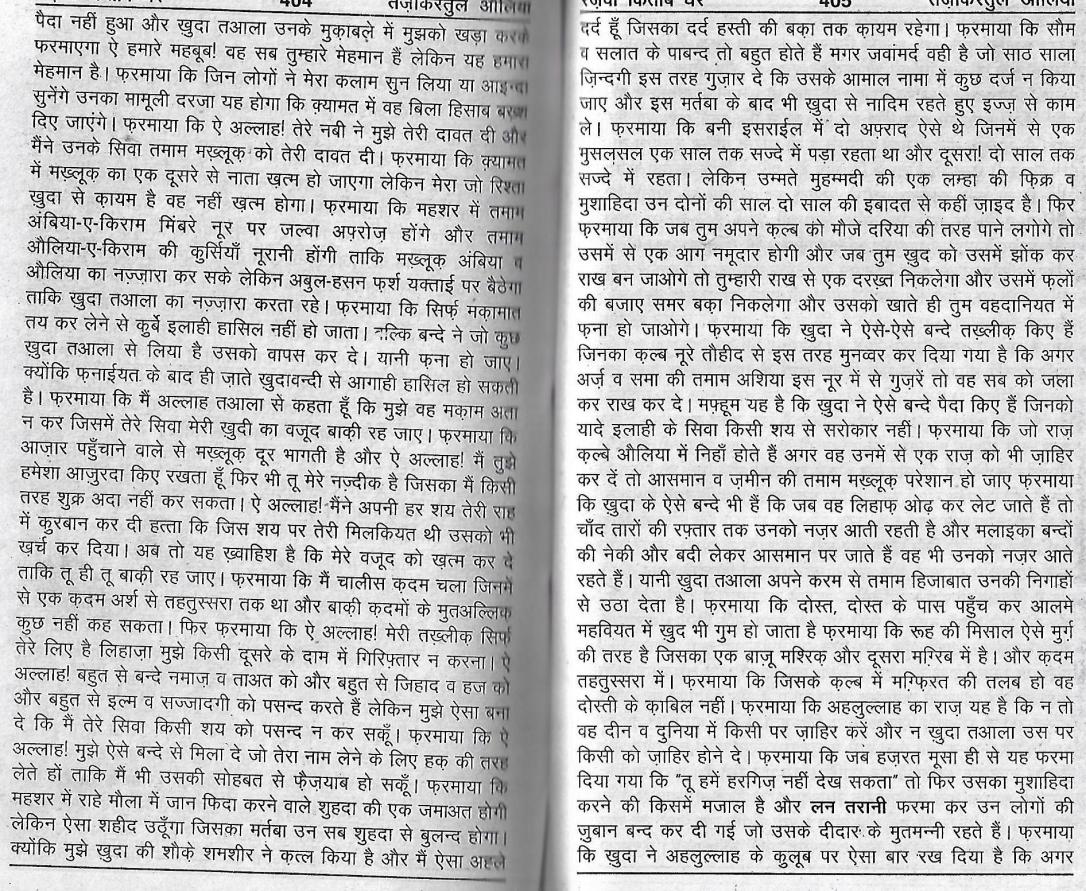 404
तज़किरतुल औलिया
पैदा नहीं हुआ और खुदा तआला उनके मुक़ाबले में मुझको खड़ा करके
फ़रमाएगा ऐ हमारे महबूब! वह सब तुम्हारे मेहमान हैं लेकिन यह हमारा
मेहमान है। फ़रमाया कि जिन लोगों ने मेरा कलाम सुन लिया या आइन्दा
सुनेंगे उनका मामूली दरजा यह होगा कि क़्यामत में वह बिला हिसाब बख़्श
दिए जाएंगे। फ़रमाया कि ऐ अल्लाह! तेरे नबी ने मुझे तेरी दावत दी और
मैंने उनके सिवा तमाम मख़्लूक़ को तेरी दावत दी। फ़रमाया कि क़्यामत
में मख़्लूक़ का एक दूसरे से नाता ख़त्म हो जाएगा लेकिन मेरा जो रिश्ता
खुदा से क़ायम है वह नहीं ख़त्म होगा। फ़रमाया कि महशर में तमाम
अंबिया-ए-किराम मिंबरे नूर पर जल्वा अफ़रोज़ होंगे और तमाम
औलिया-ए-किराम की कुर्सियाँ नूरानी होंगी ताकि मख़्लूक़ अंबिया व
औलिया का नज़्ज़ारा कर सके लेकिन अबुल-हसन फ़र्श यक्ताई पर बैठेगा
ताकि ख़ुदा तआला का नज़्ज़ारा करता रहे। फ़रमाया कि सिर्फ़ मक़ामात
तय कर लेने से कुर्बे इलाही हासिल नहीं हो जाता। बल्कि बन्दे ने जो कुछ
ख़ुदा तआला से लिया है उसको वापस कर दे। यानी फ़ना हो जाए।
क्योंकि फ़नाईयत के बाद ही ज़ाते खुदावन्दी से आगाही हासिल हो सकती
है। फ़रमाया कि मैं अल्लाह तआला से कहता हूँ कि मुझे वह मक़ाम अता
न कर जिसमें तेरे सिवा मेरी ख़ुदी का वजूद बाक़ी रह जाए। फ़रमाया कि
आज़ार पहुँचाने वाले से मख़्लूक़ दूर भागती है और ऐ अल्लाह! मैं तुझे
हमेशा आजुरदा किए रखता हूँ फिर भी तू मेरे नज़्दीक है जिसका मैं किसी
तरह शुक्र अदा नहीं कर सकता। ऐ अल्लाह! मैंने अपनी हर शय तेरी राह
में कुरबान कर दी हत्ता कि जिस शय पर तेरी मिलकियत थी उसको भी
ख़र्च कर दिया। अब तो यह ख़्वाहिश है कि मेरे वजूद को ख़त्म कर दे
ताकि तू ही तू बाक़ी रह जाए। फ़रमाया कि मैं चालीस क़दम चला जिनमें
से एक क़दम अर्श से तहतुस्सरा तक था और बाक़ी क़दमों के मुतअल्लिक़
कुछ नहीं कह सकता। फिर फ़रमाया कि ऐ अल्लाह! मेरी तख़्लीक़ सिर्फ़
तेरे लिए है लिहाज़ा मुझे किसी दूसरे के दाम में गिरिफ़्तार न करना। ऐ
अल्लाह! बहुत से बन्दे नमाज़ व ताअत को और बहुत से जिहाद व हज को
और बहुत से इल्म व सज्जादगी को पसन्द करते हैं लेकिन मुझे ऐसा बना
दे कि मैं तेरे सिवा किसी शय को पसन्द न कर सकूँ। फ़रमाया कि ऐ
अल्लाह! मुझे ऐसे बन्दे से मिला दे जो तेरा नाम लेने के लिए हक़ की तरह
लेते हों ताकि मैं भी उसकी सोहबत से फ़ैज़याब हो सकूँ। फ़रमाया कि
महशर में राहे मौला में जान फिदा करने वाले शुहदा की एक जमाअत होगी
लेकिन ऐसा शहीद उठूँगा जिसका मर्तबा उन सब शुहदा से बुलन्द होगा।
क्योंकि मुझे खुदा की शौक़े शमशीर ने क़त्ल किया है और मैं ऐसा अहले
रज़वी किताब घर
405
तज़किरतुल औलिया
दर्द हूँ जिसका दर्द हस्ती की बक़ा तक क़ायम रहेगा। फ़रमाया कि सौम
व सलात के पाबन्द तो बहुत होते हैं मगर जवांमर्द वही है जो साठ साला
ज़िन्दगी इस तरह गुज़ार दे कि उसके आमाल नामा में कुछ दर्ज न किया
जाए और इस मर्तबा के बाद भी ख़ुदा से नादिम रहते हुए इज्ज़ से काम
ले। फ़रमाया कि बनी इसराईल में दो अफ़्राद ऐसे थे जिनमें से एक
मुसलसल एक साल तक सज्दे में पड़ा रहता था और दूसरा! दो साल तक
सज्दे में रहता। लेकिन उम्मते मुहम्मदी की एक लम्हा की फ़िक्र व
मुशाहिदा उन दोनों की साल दो साल की इबादत से कहीं ज़ाइद है। फिर
फ़रमाया कि जब तुम अपने क़ल्ब को मौजे दरिया की तरह पाने लगोगे तो
उसमें से एक आग नमूदार होगी और जब तुम खुद को उसमें झोंक कर
राख बन जाओगे तो तुम्हारी राख से एक दरख़्त निकलेगा और उसमें फ़लों
की बजाए समर बक़ा निकलेगा और उसको खाते ही तुम वहदानियत में
फ़ना हो जाओगे। फ़रमाया कि ख़ुदा ने ऐसे-ऐसे बन्दे तख़्लीक़ किए हैं
जिनका क़ल्ब नूरे तौहीद से इस तरह मुनव्वर कर दिया गया है कि अगर
अर्ज़ व समा की तमाम अशिया इस नूर में से गुज़रें तो वह सब को जला
कर राख कर दे। मफ़्हूम यह है कि ख़ुदा ने ऐसे बन्दे पैदा किए हैं जिनको
यादे इलाही के सिवा किसी शय से सरोकार नहीं। फ़रमाया कि जो राज़
क़ल्बे औलिया में निहाँ होते हैं अगर वह उनमें से एक राज़ को भी ज़ाहिर
कर दें तो आसमान व ज़मीन की तमाम मख़्लूक़ परेशान हो जाए फ़रमाया
कि ख़ुदा के ऐसे बन्दे भी हैं कि जब वह लिहाफ़ ओढ़ कर लेट जाते हैं तो
चाँद तारों की रफ़्तार तक उनको नज़र आती रहती है और मलाइका बन्दों
की नेकी और बदी लेकर आसमान पर जाते हैं वह भी उनको नज़र आते
रहते हैं। यानी ख़ुदा तआला अपने करम से तमाम हिजाबात उनकी निगाहों
से उठा देता है। फ़रमाया कि दोस्त, दोस्त के पास पहुँच कर आलमे
महवियत में खुद भी गुम हो जाता है फ़रमाया कि रूह की मिसाल ऐसे मुर्ग़
की तरह है जिसका एक बाज़ू मश्रिक़ और दूसरा मग़्रिब में है। और क़दम
तहतुस्सरा में। फ़रमाया कि जिसके क़ल्ब में मग़्फ़िरत की तलब हो वह
दोस्ती के क़ाबिल नहीं। फ़रमाया कि अहलुल्लाह का राज़ यह है कि न तो
वह दीन व दुनिया में किसी पर ज़ाहिर करें और न ख़ुदा तआला उस पर
किसी को ज़ाहिर होने दे। फ़रमाया कि जब हज़रत मूसा ही से यह फ़रमा
दिया गया कि "तू हमें हरगिज़ नहीं देख सकता" तो फिर उसका मुशाहिदा
करने की किसमें मजाल है और लन तरानी फ़रमा कर उन लोगों की
जुबान बन्द कर दी गई जो उसके दीदार के मुतमन्नी रहते हैं। फ़रमाया
कि ख़ुदा ने अहलुल्लाह के कुलूब पर ऐसा बार रख दिया है कि अगर